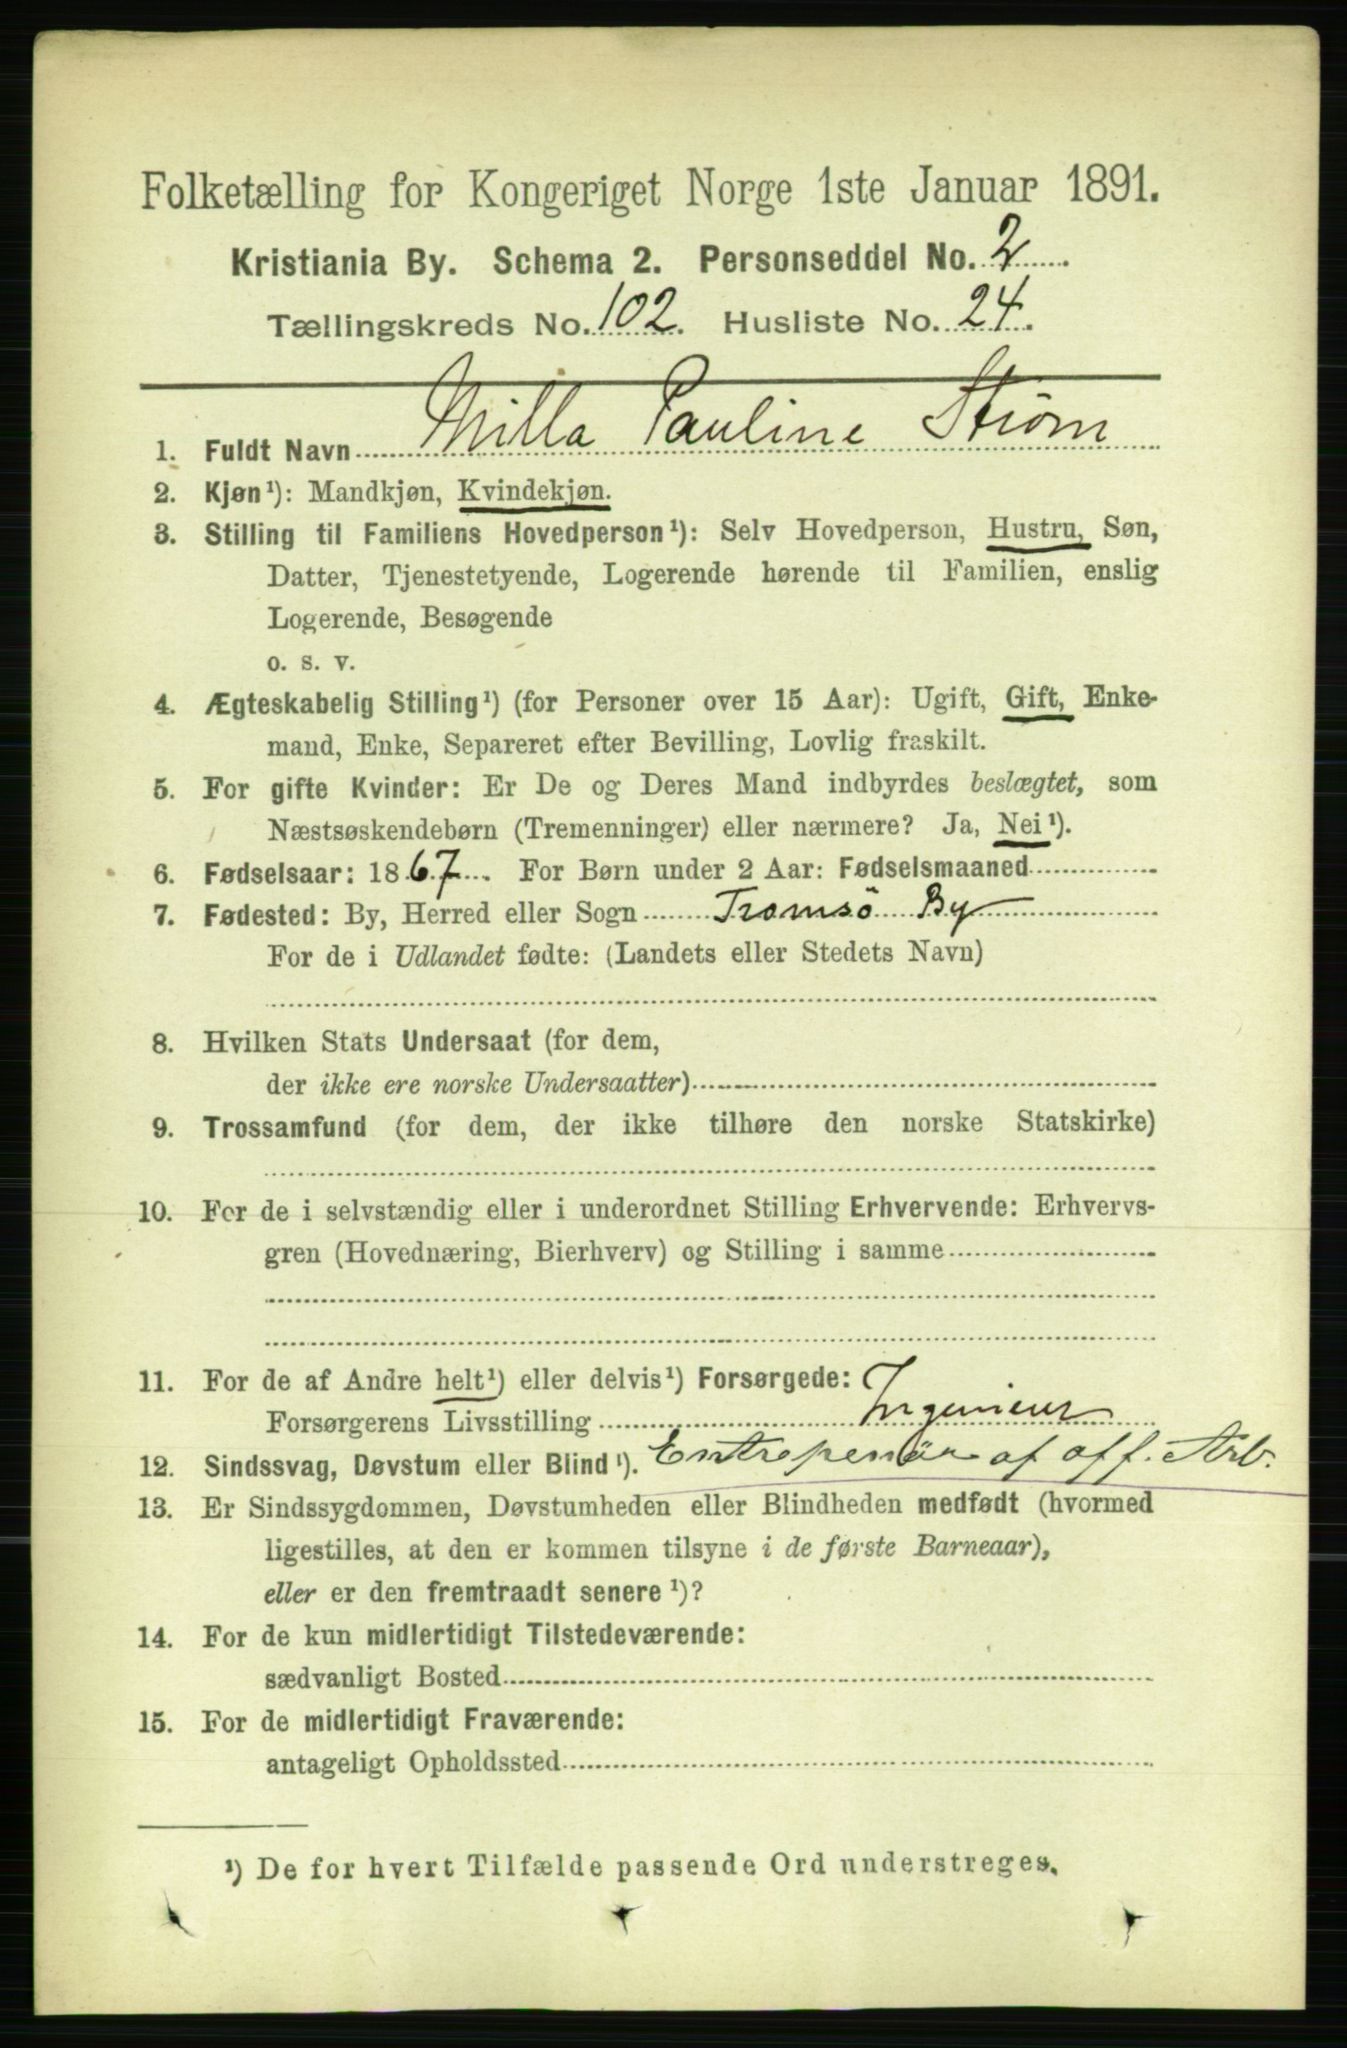 Folketælling for Kongeriget Norge 1ste Januar 1891.
Kristiania By. Schema 2. Personseddel No. 2
Tællingskreds No. 102. Husliste No. 24.
1. Fuldt Navn Milla Pauline Strøm
2. Kjøn¹): Mandkjøn, Kvindekjøn.
3. Stilling til Familiens Hovedperson¹): Selv Hovedperson, Hustru, Søn,
Datter, Tjenestetyende, Logerende hørende til Familien, enslig
Logerende, Besøgende
o. s. v.
4. Ægteskabelig Stilling¹) (for Personer over 15 Aar): Ugift, Gift, Enke-
mand, Enke, Separeret efter Bevilling, Lovlig fraskilt.
5. For gifte Kvinder: Er De og Deres Mand indbyrdes beslægtet, som
Næstsøskendebørn (Tremenninger) eller nærmere? Ja, Nei¹).
6. Fødselsaar: 1867. For Børn under 2 Aar: Fødselsmaaned
7. Fødested: By, Herred eller Sogn Tromsö By
For de i Udlandet fødte: (Landets eller Stedets Navn)
8. Hvilken Stats Undersaat (for dem,
der ikke ere norske Undersaatter)
9. Trossamfund (for dem, der ikke tilhøre den norske Statskirke)
10. For de i selvstændig eller i underordnet Stilling Erhvervende: Erhvervs-
gren (Hovednæring, Bierhverv) og Stilling i samme
11. For de af Andre helt¹) eller delvis¹) Forsørgede:
Forsørgerens Livsstilling Ingenieur
12. Sindssvag, Døvstum eller Blind¹). Entrepenör af off. Arb.
13. Er Sindssygdommen, Døvstumheden eller Blindheden medfødt (hvormed
ligestilles, at den er kommen tilsyne i de første Barneaar),
eller er den fremtraadt senere¹)?
14. For de kun midlertidigt Tilstedeværende:
sædvanligt Bosted
15. For de midlertidigt Fraværende:
antageligt Opholdssted
¹) De for hvert Tilfælde passende Ord understreges.